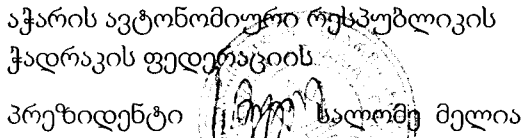 აჭარის ავტონომიური რესპუბლიკის
ჭადრაკის ფედერაციის
პრეზიდენტი სალომე მელია